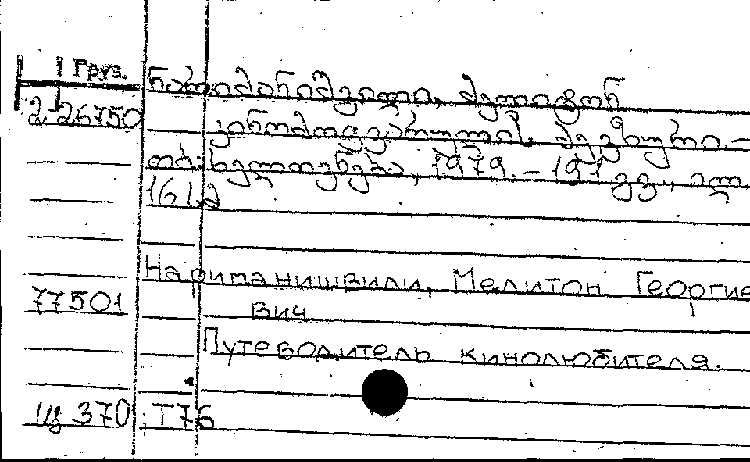 Груз.
ნარიმანიშვილი, მელიტონ
2 26750
კინომოყვარულის მეგზური.–
თბ: ხელოვნება, 1979. – 191 გვ., ილ.
161ა
Нариманишвили, Мелитон Георгие
77501
вич
Путеводитель кинолюбителя.
из 370 Т76